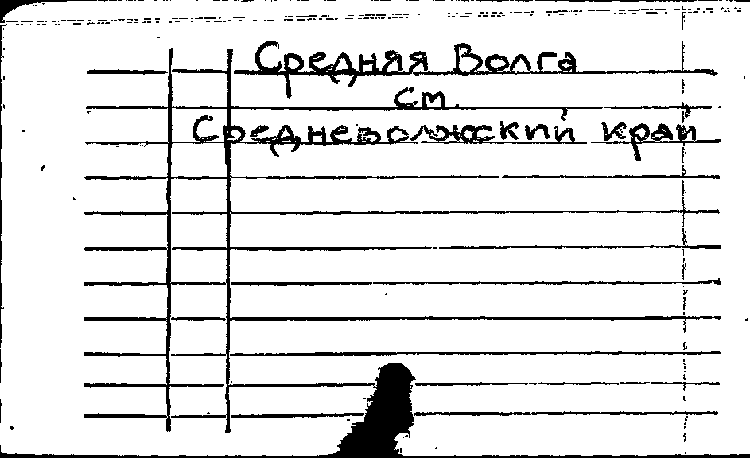 Средняя Волга
см.
Средневолжский край